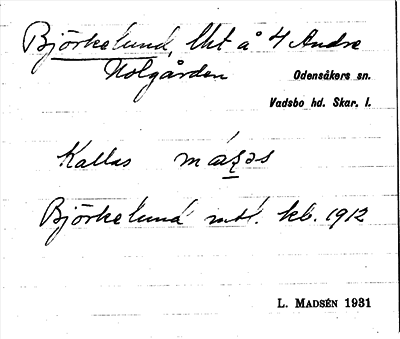 Björkelund, lht å 4 Andre
Holgården
Odensåkers sn.
Vadsbo hd. Skar. l.
Kallas
Björkelund kb. 1912
L. MADSÉN 1931